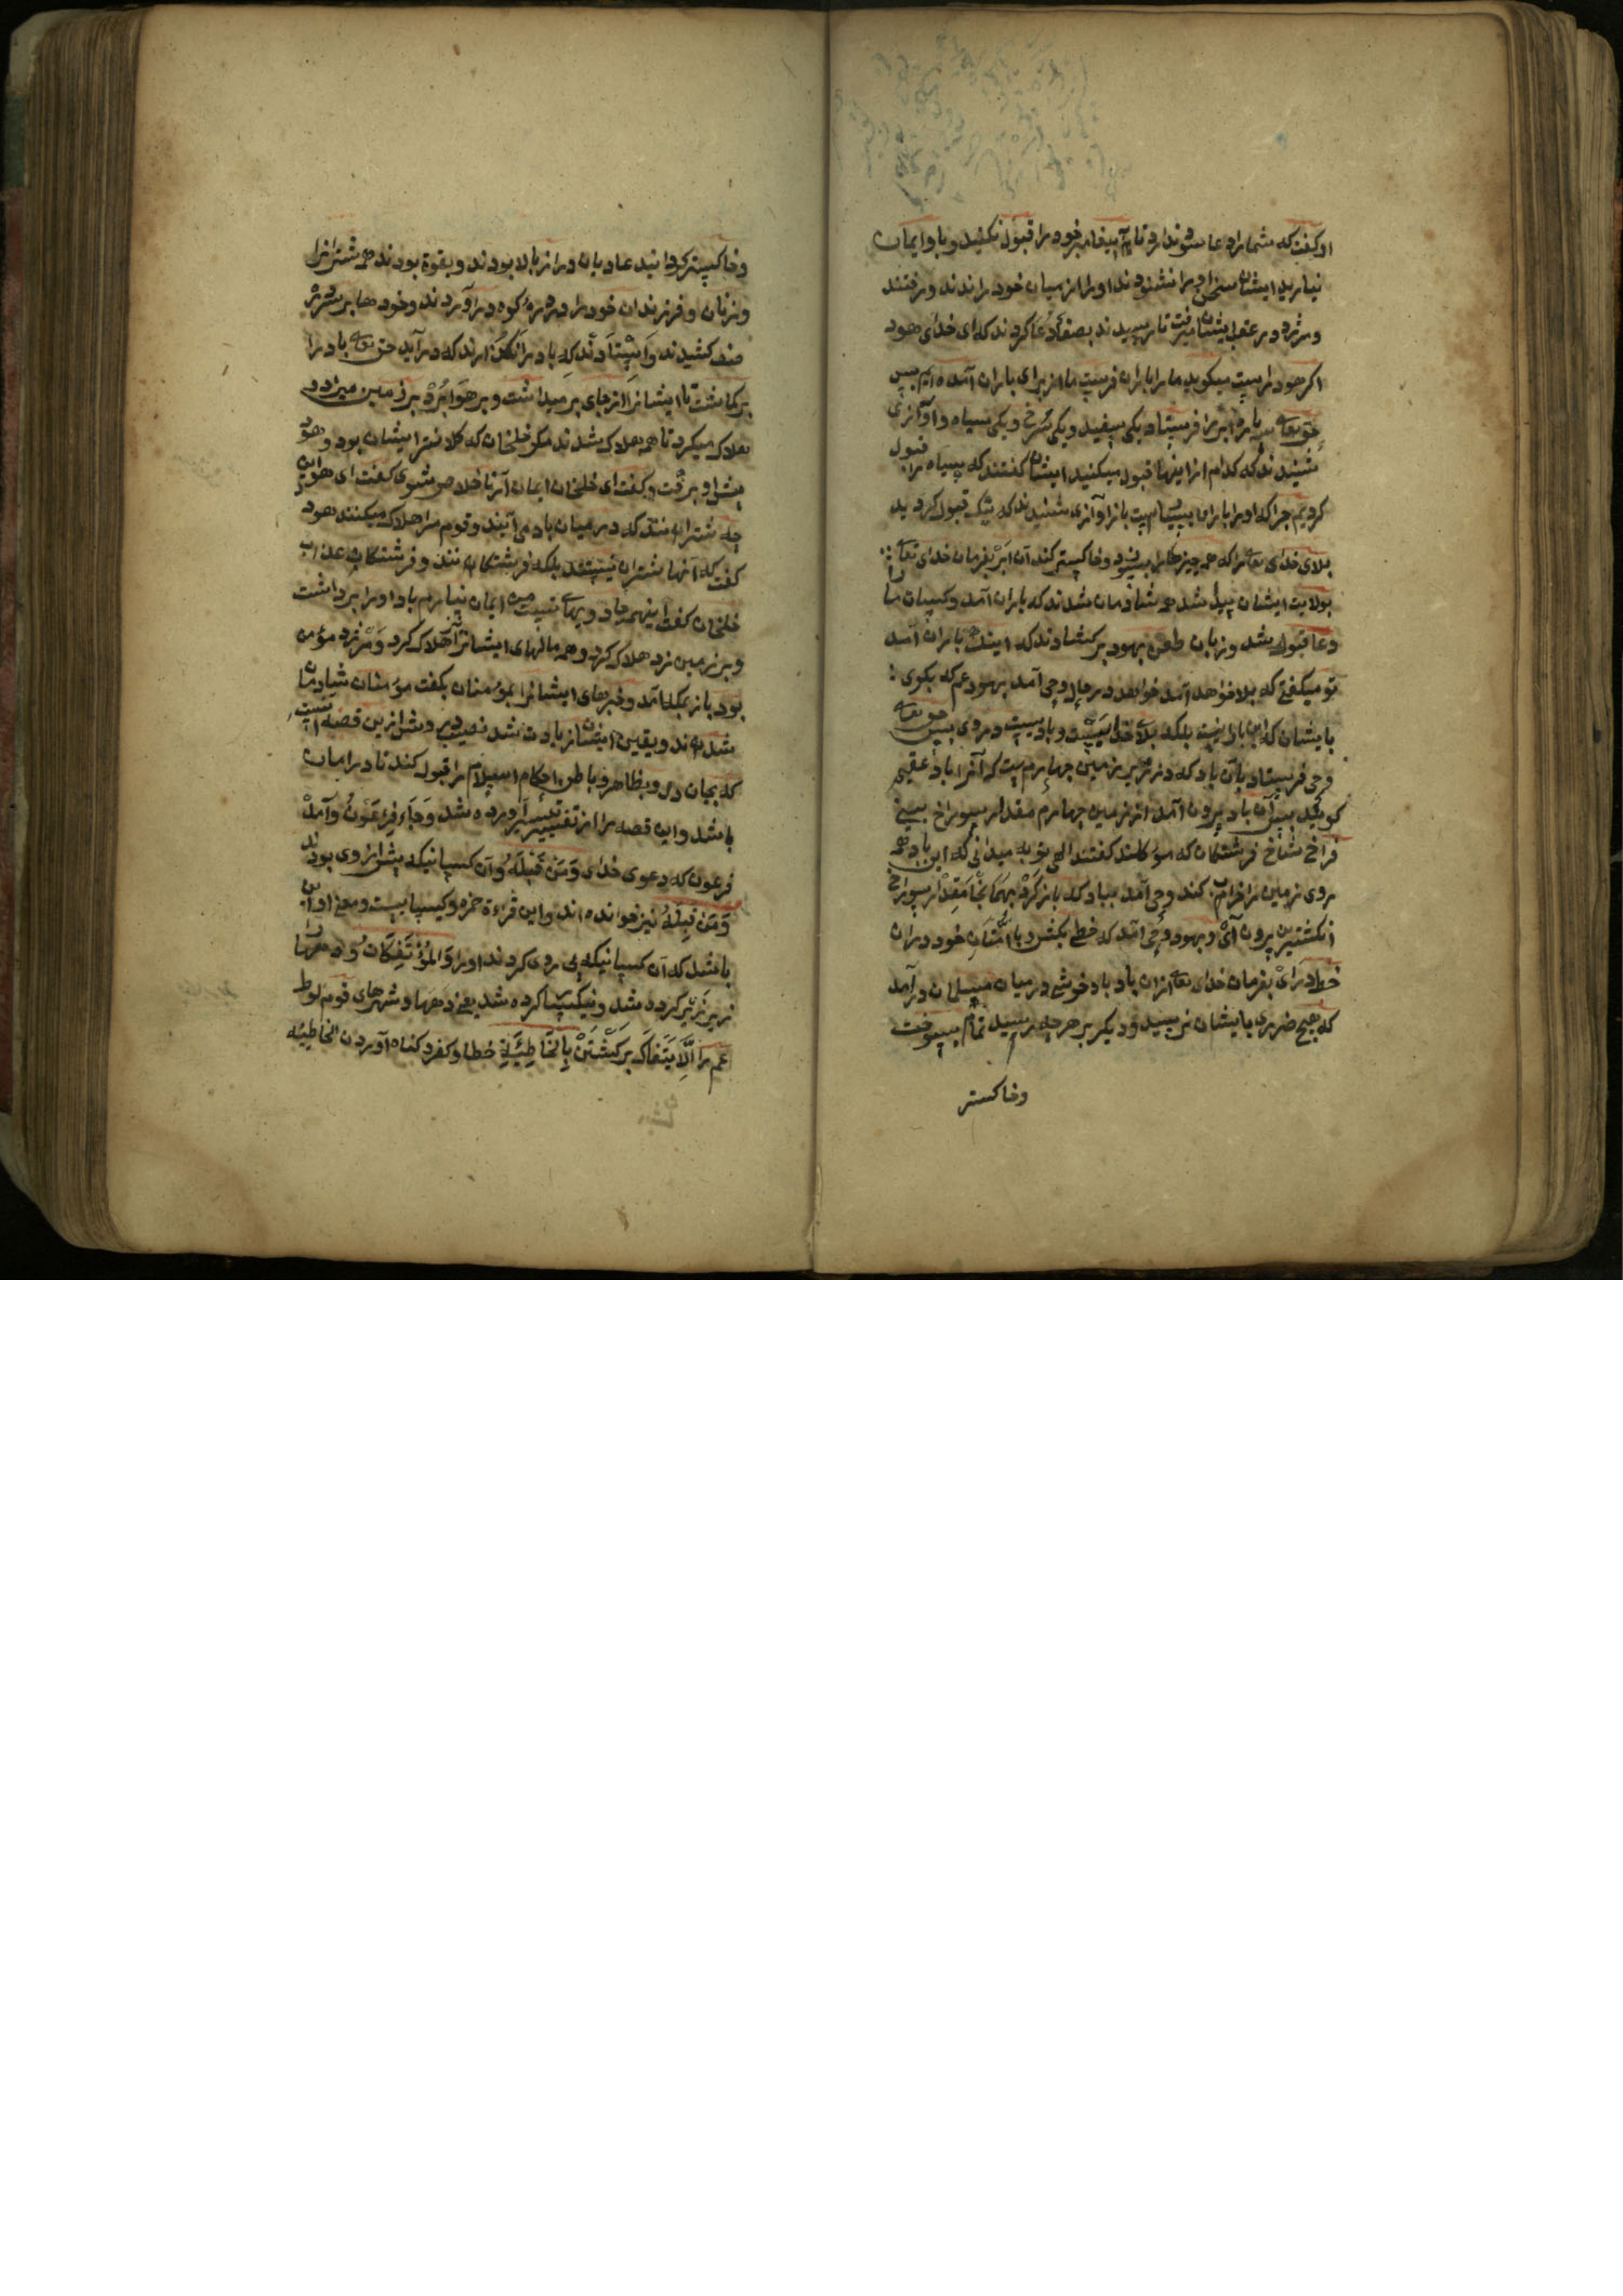 او گفت که شما را دعا سود ندارد تا آن پیغامبر خود را قبول نکنید و با و ایمان
نیارید ایشان سخن او را نشنودند او را از میان خود راندند و رفتند
و مرثد در عقب ایشان میرفت تا رسیدند بصفا دعا کردند که ای خدای هود
اگر هود راست میکوید ما را باران فرست ما از برای باران آمده ایم پس
حق تعالی سه پاره ابر را فرستاد یکی سفید و یکی سرخ و یکی سیاه و آوازی
شنیدند که کدام از اینها قبول میکنید ایشان گفتند که سیاه را قبول
کردیم چرا که او را باران بسیارست باز آوازی شنیدند که نیک قبول کردید
بلای خدای تعالی را که همه چیزها را بسوزد و خاکستر کند آن ابر بفرمان خدای تعالی
بولایت ایشان پیدا شد همه شادمان شدند که باران آمد و کسان ما را
دعا قبول شد و زبان طعن بهود برکشادند که اینک باران آمد
تو میکفتی که بلا خواهد آمد خواهد در حال وحی آمد بهود عم که بکوی
بایشان که این باران نیست بلکه بلای خداست و بادیست در وی پس حق تعالی
وحی فرستاد بآن باد که در زیر زمین چهارم است که آنرا باد عقیم
کویند پس آن باد بیرون آمد از زمین چهارم مقدار سوراخ بینی
فراخ شاخ فرشتکان که موکلند کفتند الهی تو به میدانی که این باد همه
روی زمین را خراب کند وحی آمد بباد که باز کرد بهمانجا مقدار سوراخ
انکشترین بیرون آی و بهود وحی آمد که خطی بکش و با امتان خود در ان
خط درای بفرمان خدای تعالی ازان باد باد خوشی در میان مسلمان درآمد
که هیچ ضرری بایشان نرسید و دیکر بر هرچه رسید تمام بسوخت
وخاکستر
وخاکستر کردانید عادیان دراز بالا بودند و بقوة بودند همه شترانرا
و زنان و فرزندان خود را در دره کوه درآوردند و خودها بر سر دره
صف کشیدند و ایستادند که باد را نکذارند که درآید حق تعالی باد را
برکماشت تا ایشانرا از جای برمیداشت و بر هوا برده بر زمین میزد و
هلاک میکرد تا همه هلاک شدند مکر خلخان که کلانتر ایشان بود و هود
پیش او برفت و کفت ای خلخان ایمان آر تا خلاص شوی کفت ای هود این
چه شترانند که در میان باد می آیند و قوم مرا هلاک میکنند هود
کفت که آنها شتران نیستند بلکه فرشتکانند و فرشتکان عذاب
خلخان کفت اینهمه جاد و یهای تست من ایمان نیارم باد او را برداشت
و بر زمین زد هلاک کرد و همه مالهای ایشانرا هلاک کرد و مرثد مؤمن
بود باز بمکه آمد و خبرهای ایشانرا بمؤمنان بکفت مؤمنان شادمان
شدند و یقین ایشان زیادت شد نصیب درویش ازین قصه آنست
که بجان و دل و بظاهر و باطن احکام اسلام را قبول کند تا در امان
باشد و این قصه را از تفسیر آورده شد وَجَاءَ فِرْعَوْنُ و آمد
فرعون که دعوی خدای وَمَنْ قَبْلَهُ و آن کسانیکه پیش از وی بودند
وَمَنْ قِبَلَهُ نیز خوانده اند و این قراءة حمزه و کسایست و معنی او آن
باشد که آن کسانیکه پی روی کردند او را وَالْمُؤْتَفِكَاتُ و دهها را
زیر زبر کرده شد و نیکسا کرده شد یعنی دهها و شهرهای قوم لوط
عم را بِالْخَاطِئَةِ خطا و کفر و کناه آوردن الخاطیه